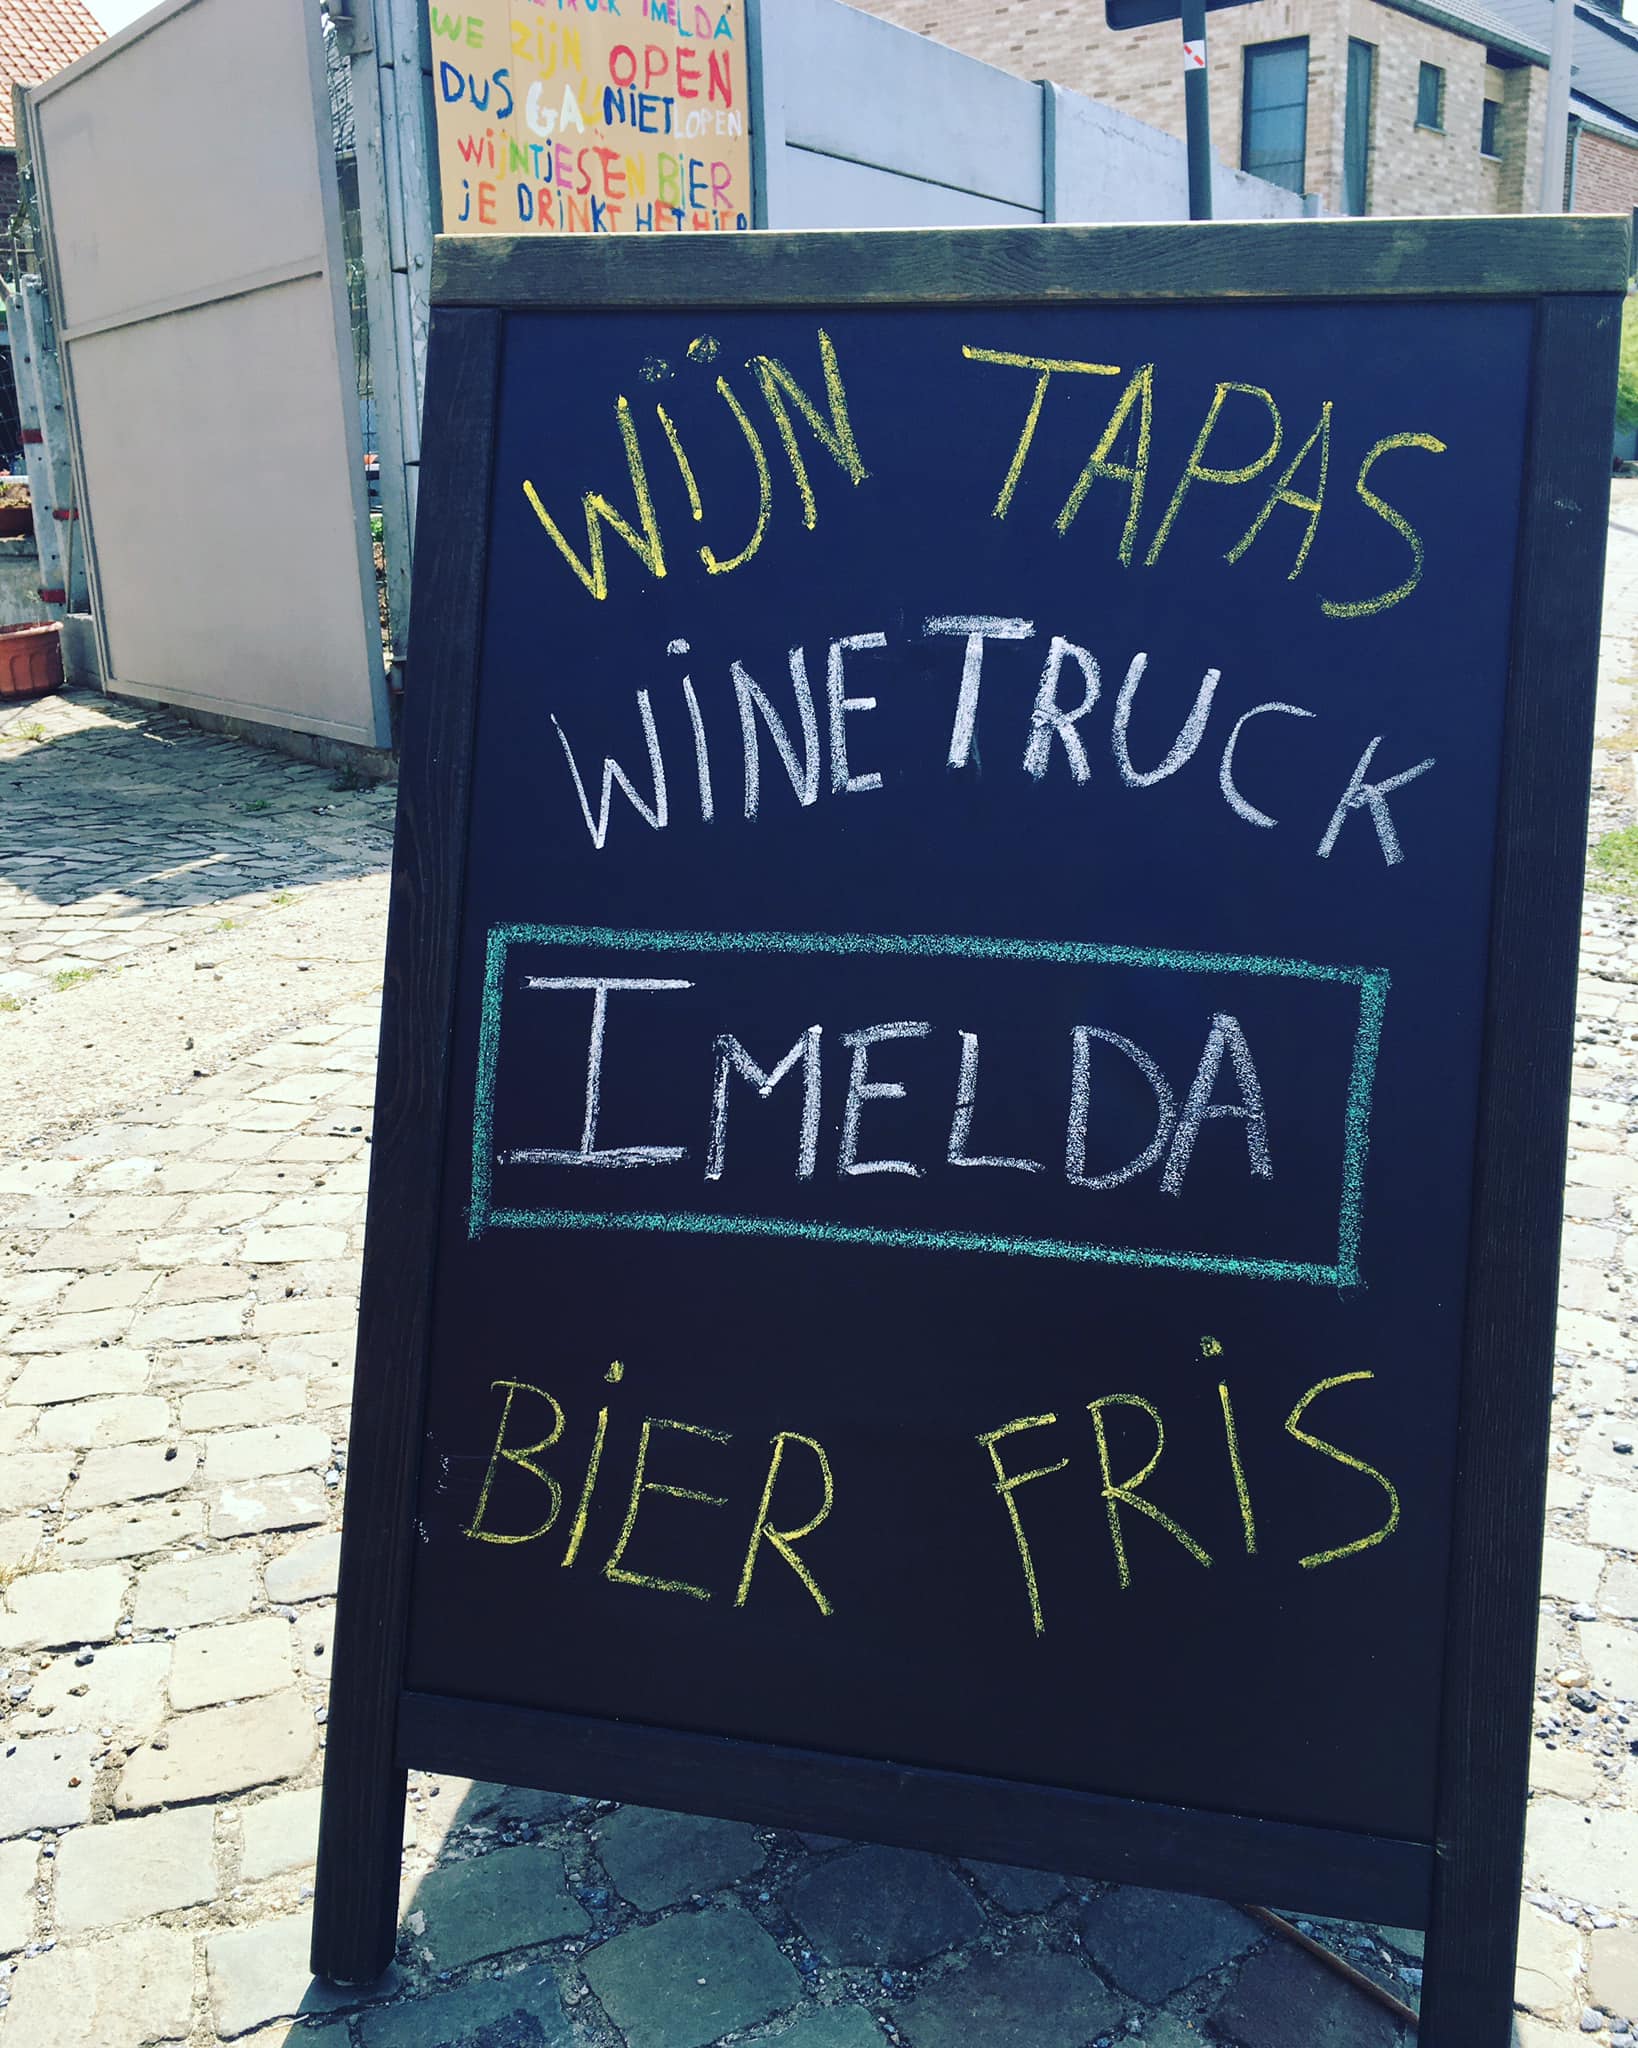 TRUCK IMELDA
WE ZijN OPEN
DUS GA NiET LOPEN
WijNTjES EN BiER
jE DRiNKT HET HiER
WijN TAPAS
WiNETRUCK
IMELDA
BiER FRiS